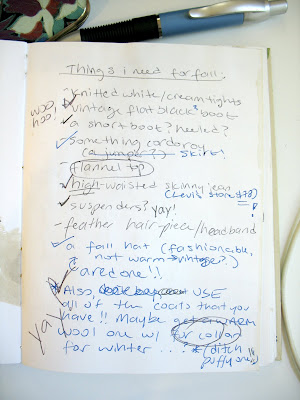 Things i need for fall:
- knitted white/cream tights
woo, hoo. vintage flat black boot
- a short boot? heeled?
✓ something corduroy
(a jumper?) skirt!
- flannel top
✓ high-waisted skinny jean
(Levis store $78)
✓ suspenders? yay!
- feather hair-piece/headband
✓ a fall hat (fashionable,
not warm → vintage?)
Cared one!!
* Also, USE
all of the coats that you
have!! Maybe get a WARM
wool one w/ fur collar
for winter .... * ditch
puffy one!!
yay!